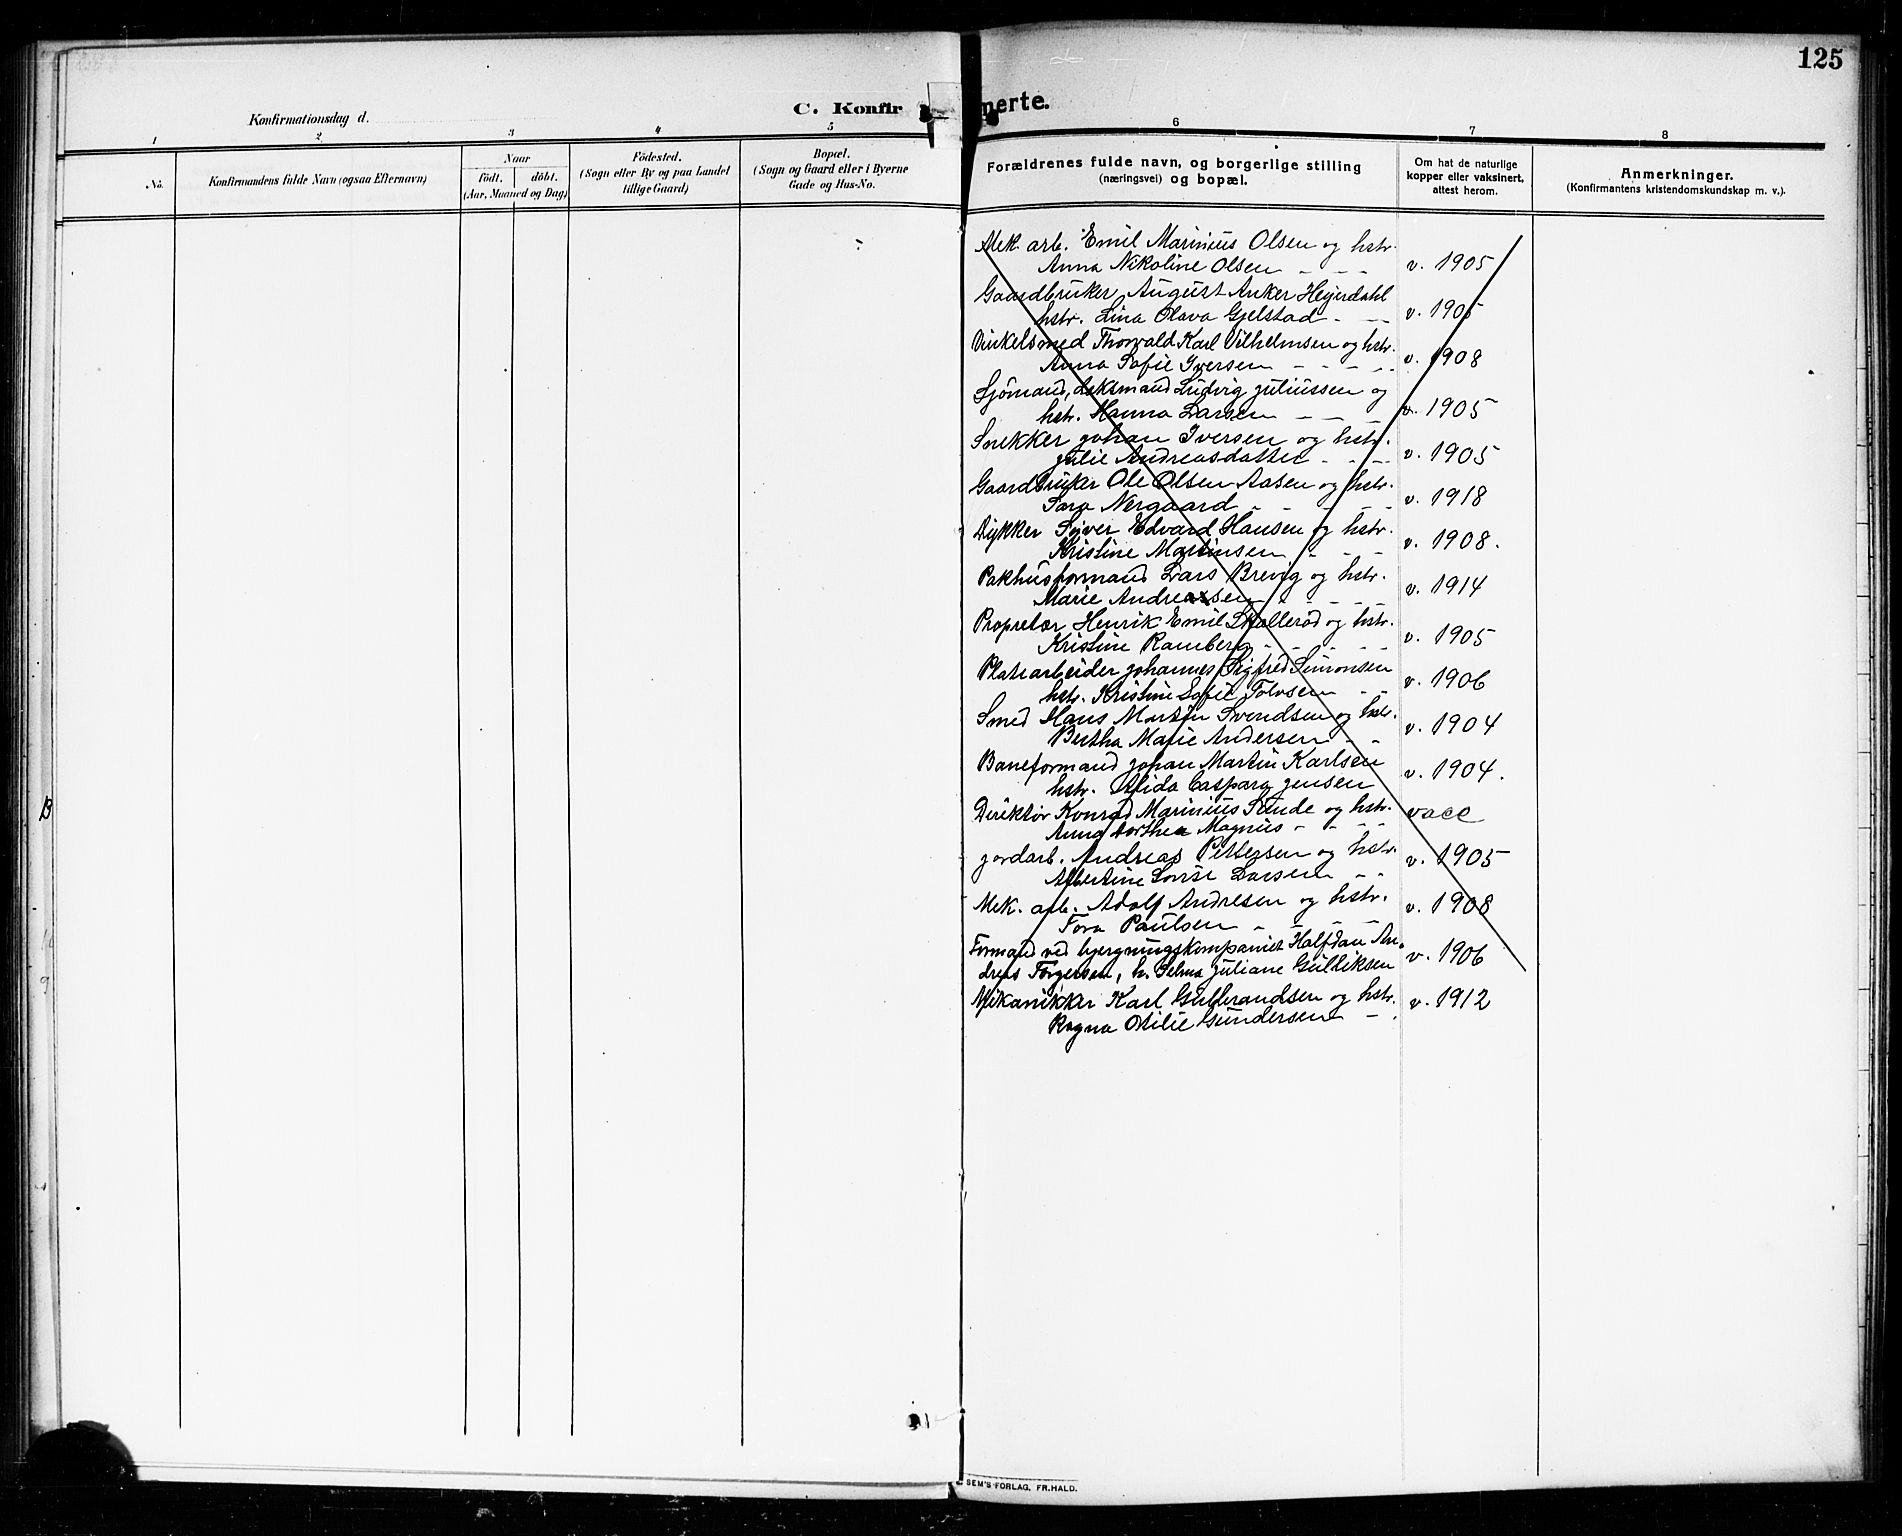 125
C. Konfirmerte.
Konfirmationsdag d.
1 2 3 4 5 6 7 8
No.
Konfirmandens fulde Navn (ogsaa Efternavn)
Naar
födt. döbt.
(Aar, Maaned og Dag)
Födested.
(Sogn eller By og paa Landet
tillige Gaard)
Bopæl.
(Sogn og Gaard eller i Byerne
Gade og Hus-No.
Forældrenes fulde navn, og borgerlige stilling
(næringsvei) og bopæl.
Om hat de naturlige
kopper eller vaksinert,
attest herom.
Anmerkninger.
(Konfirmantens kristendomskundskap m. v.).
Mek. arb. Emil Marinius Olsen og hstr.
Anna Nikoline Olsen - - - v. 1905
Gaardbruker August Anker Heyerdahl
hstr. Lina Olava Gjelstad - - v. 1905
Thorvald Karl Vilhelmsen og hstr.
Anna Sofie Iversen - - - - v. 1908
Sjömand, Ludvig Juliussen og
hstr. Hanna Larsen - - v. 1905
Snekker Johan Iversen og hstr.
Julie Andreasdatter - - - v. 1905
Gaardbruker Ole Olsen Aasen og hstr.
Sara Nergaard - - - - v. 1918
Dykker Syver Edvard Hansen og hstr.
Kristine Martinsen - - - v. 1908.
Pakhusformand Lars Brevig og hstr.
Marie Andreassen - - - v. 1914
Proprietær Henrik Emil Skallerød og hstr.
Kristine Ramberg - - - - v. 1905
Platearbeider Johannes Sigfred Simonsen
hstr. Kristine Sofie Tolvsen - - v. 1906
Smed Hans Martin Svendsen og hstr.
Bertha Marie Andersen - - v. 1904
Baneformand Johan Martin Karlsen
hstr. Alida Caspara Jensen v. 1904.
Direktör Konrad Marinius Sunde og hstr. vacc
Anna Dorthea Magnus - - -
Jordarb. Andreas Pettersen og hstr. v. 1905
Albertine Lovise Larsen - -
Mek. arb. Adolf Andresen og hstr. v. 1908
Tora Paulsen - - -
Formand ved bjergningskompaniet Halfdan An-
dreas Torgersen, h. Selma Juliane Gulliksen v. 1906
Mekanikker Karl Gulbrandsen og hstr. v. 1912
Ragna Otilie Gundersen - -
SEM'S FORLAG, FR.HALD.